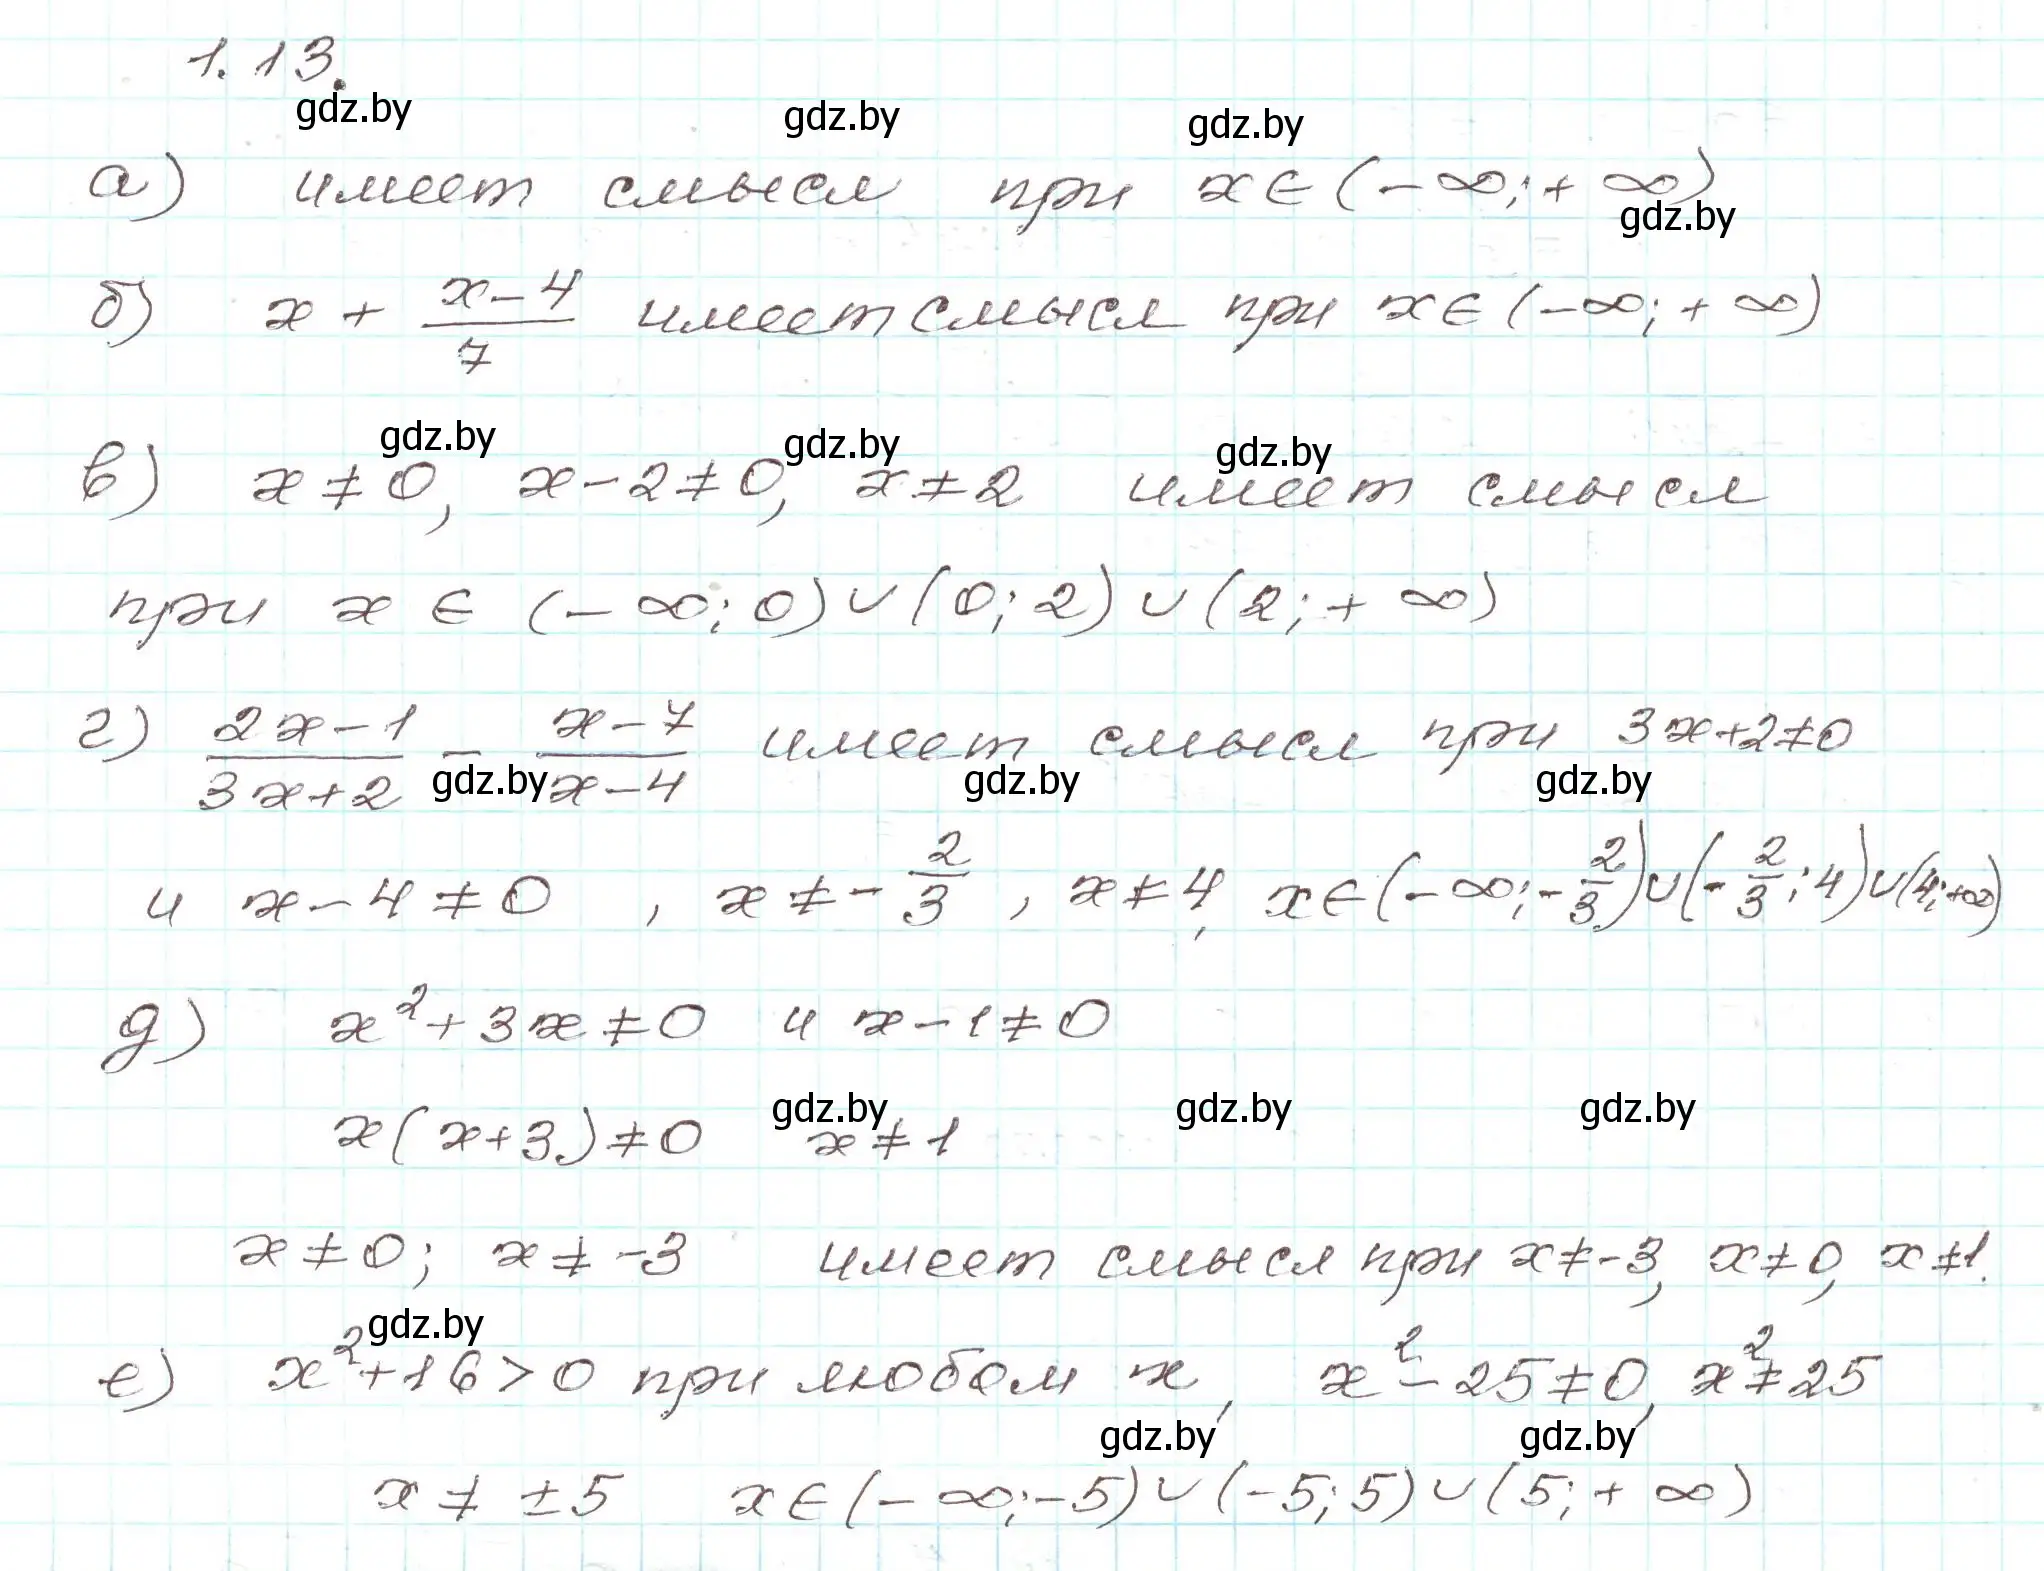 1.13.
gdz.by gdz.by gdz.by
а) имеет смысл при x∈(-∞;+∞)
gdz.by
б) x + (x-4)/7 имеет смысл при x∈(-∞;+∞)
gdz.by gdz.by gdz.by
в) x≠0, x-2≠0, x≠2 имеет смысл
при x∈(-∞;0)∪(0;2)∪(2;+∞)
г) (2x-1)/(3x+2) - (x-7)/(x-4) имеет смысл при 3x+2≠0
gdz.by gdz.by gdz.by
и x-4≠0, x≠-2/3, x≠4, x∈(-∞;-2/3)∪(-2/3;4)∪(4;+∞)
д) x²+3x≠0 и x-1≠0
gdz.by gdz.by gdz.by
x(x+3)≠0 x≠1
x≠0; x≠-3 имеет смысл при x≠-3, x≠0, x≠1.
gdz.by
е) x²+16>0 при любом x, x²-25≠0, x²≠25
gdz.by gdz.by
x≠±5 x∈(-∞;-5)∪(-5;5)∪(5;+∞)